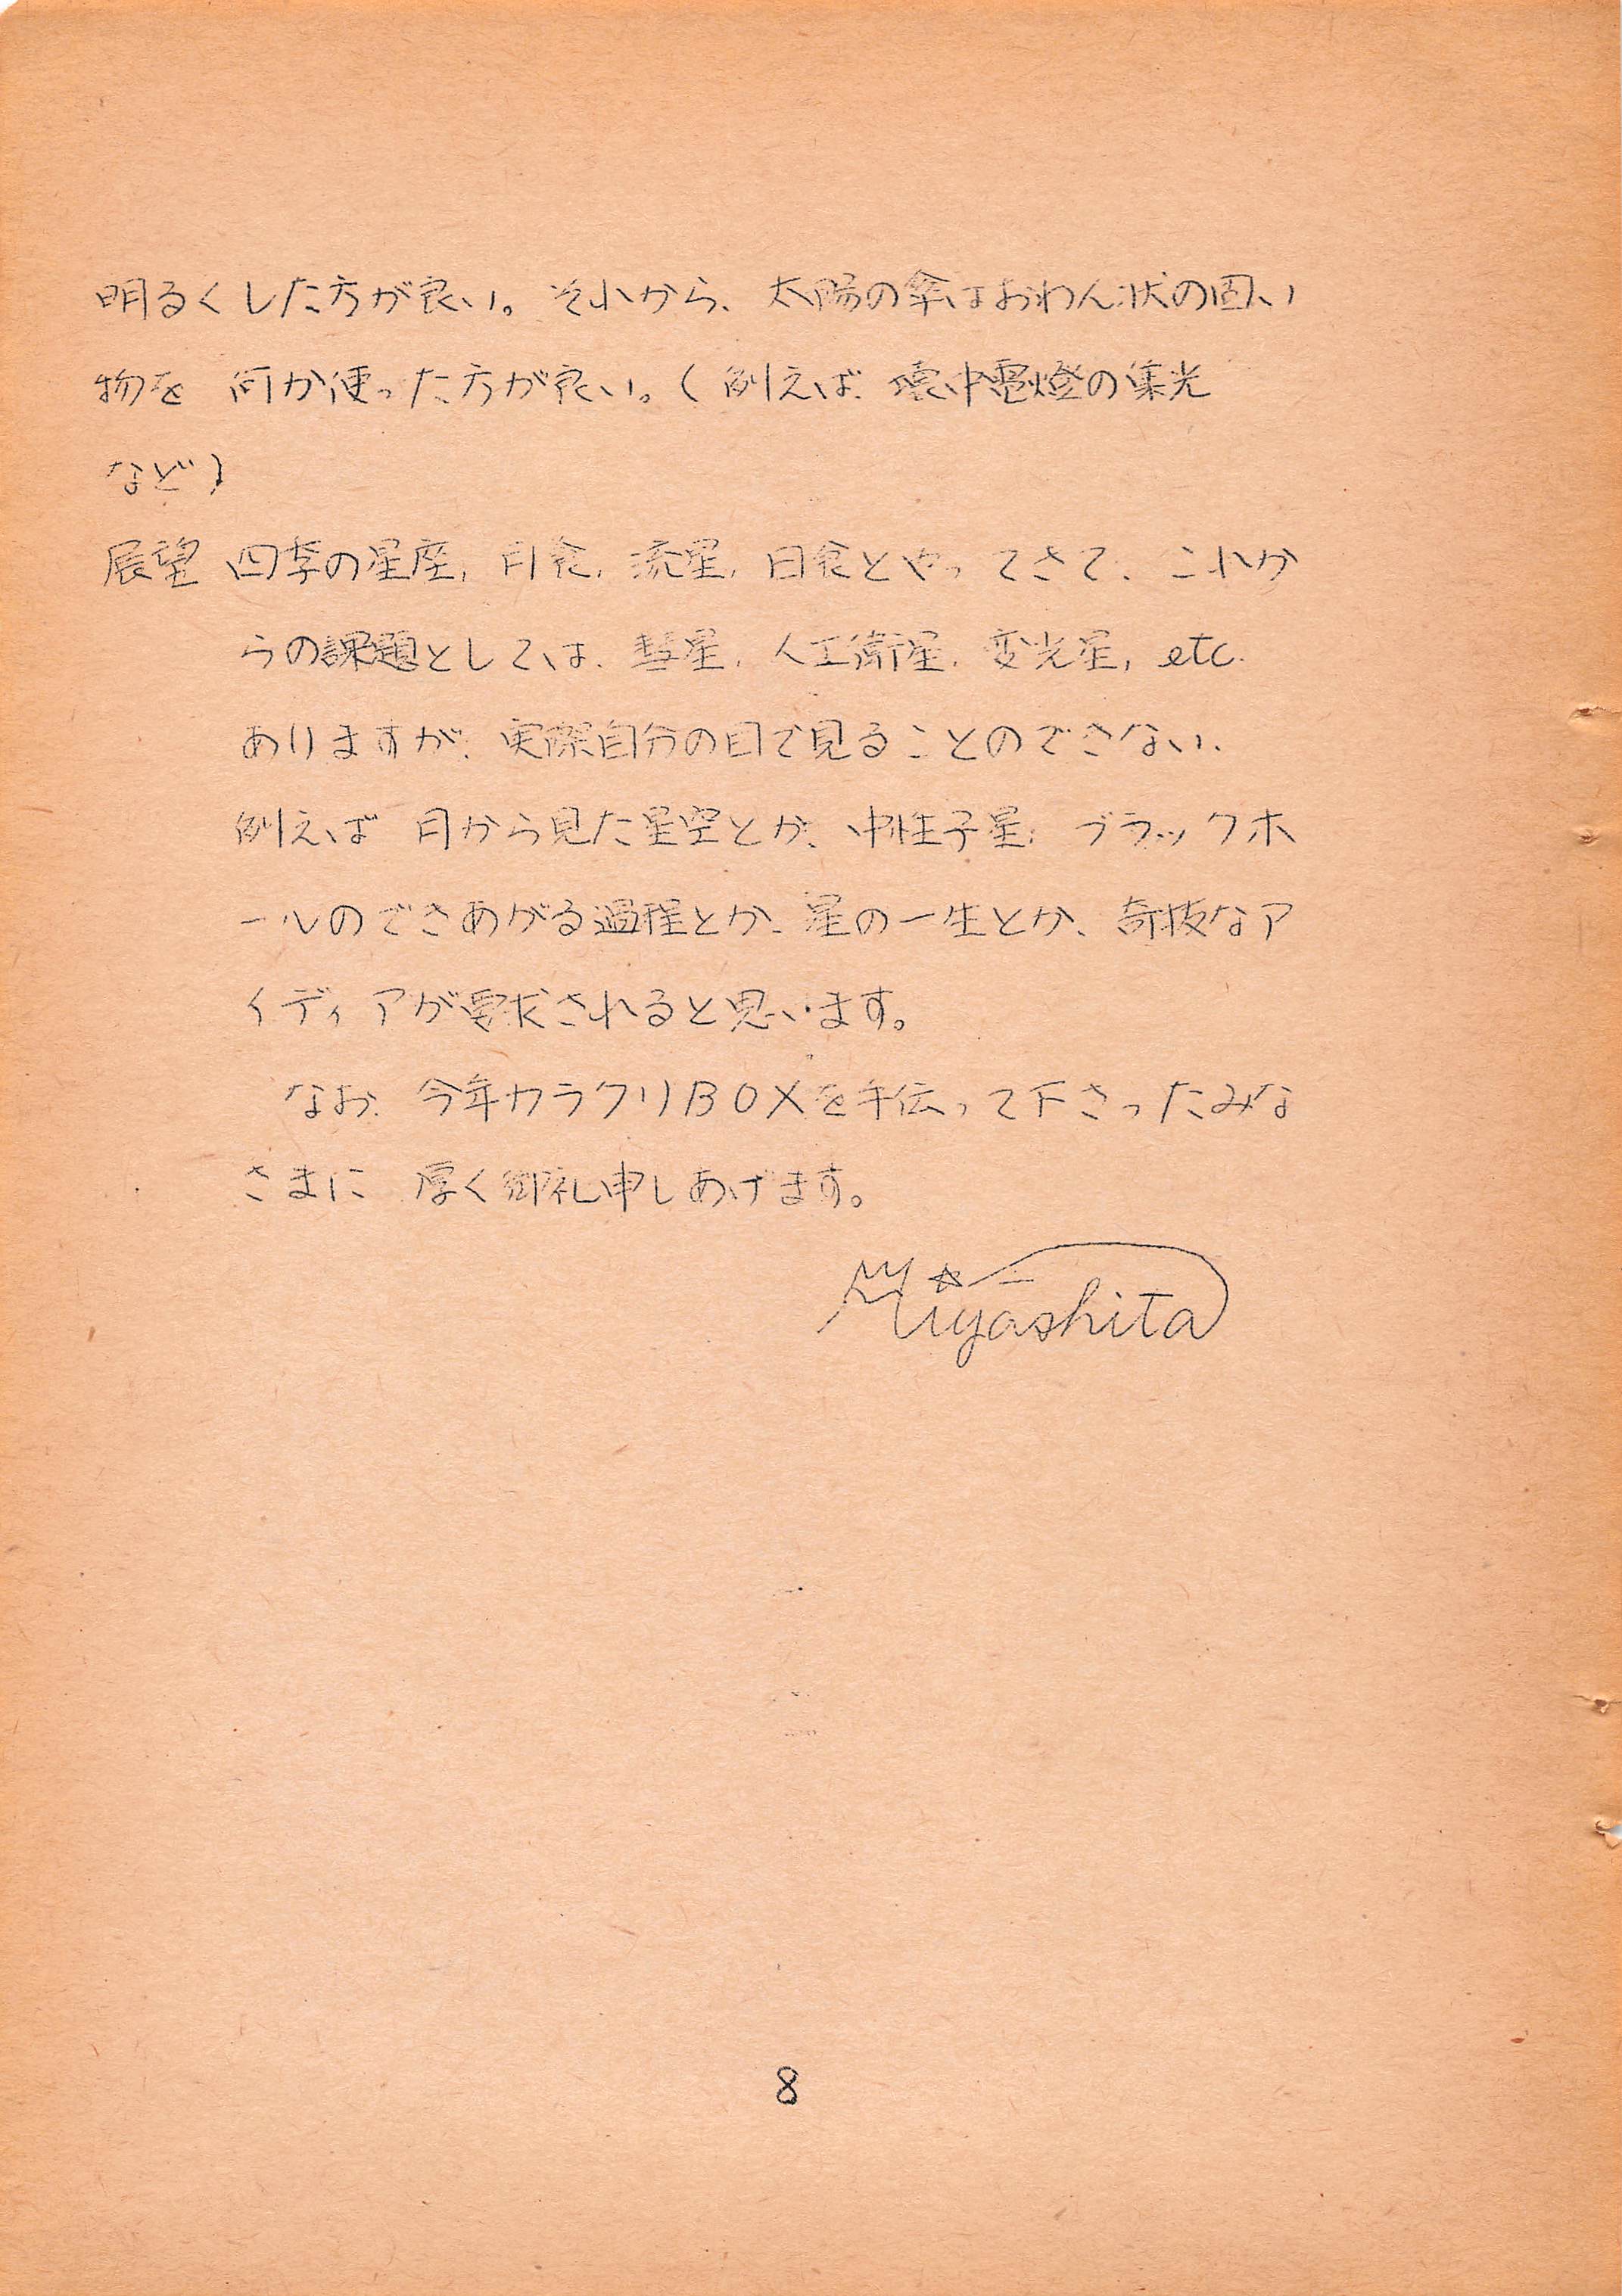 明るくした方が良い。それから、太陽の傘はおわん状の固い
物を 何か使った方が良い。(例えば、懐中電燈の集光
など)
展望 四季の星座, 月食, 流星, 日食とやってきて、これか
らの課題としては、彗星, 人工衛星, 変光星, etc.
ありますが、実際自分の目で見ることのできない、
例えば 月から見た星空とか、中性子星, ブラックホ
ールのできあがる過程とか、星の一生とか、奇抜なア
イディアが要求されると思います。
なお、今年カラクリBOXを手伝って下さったみな
さまに 厚く御礼申しあげます。
Miyashita
8